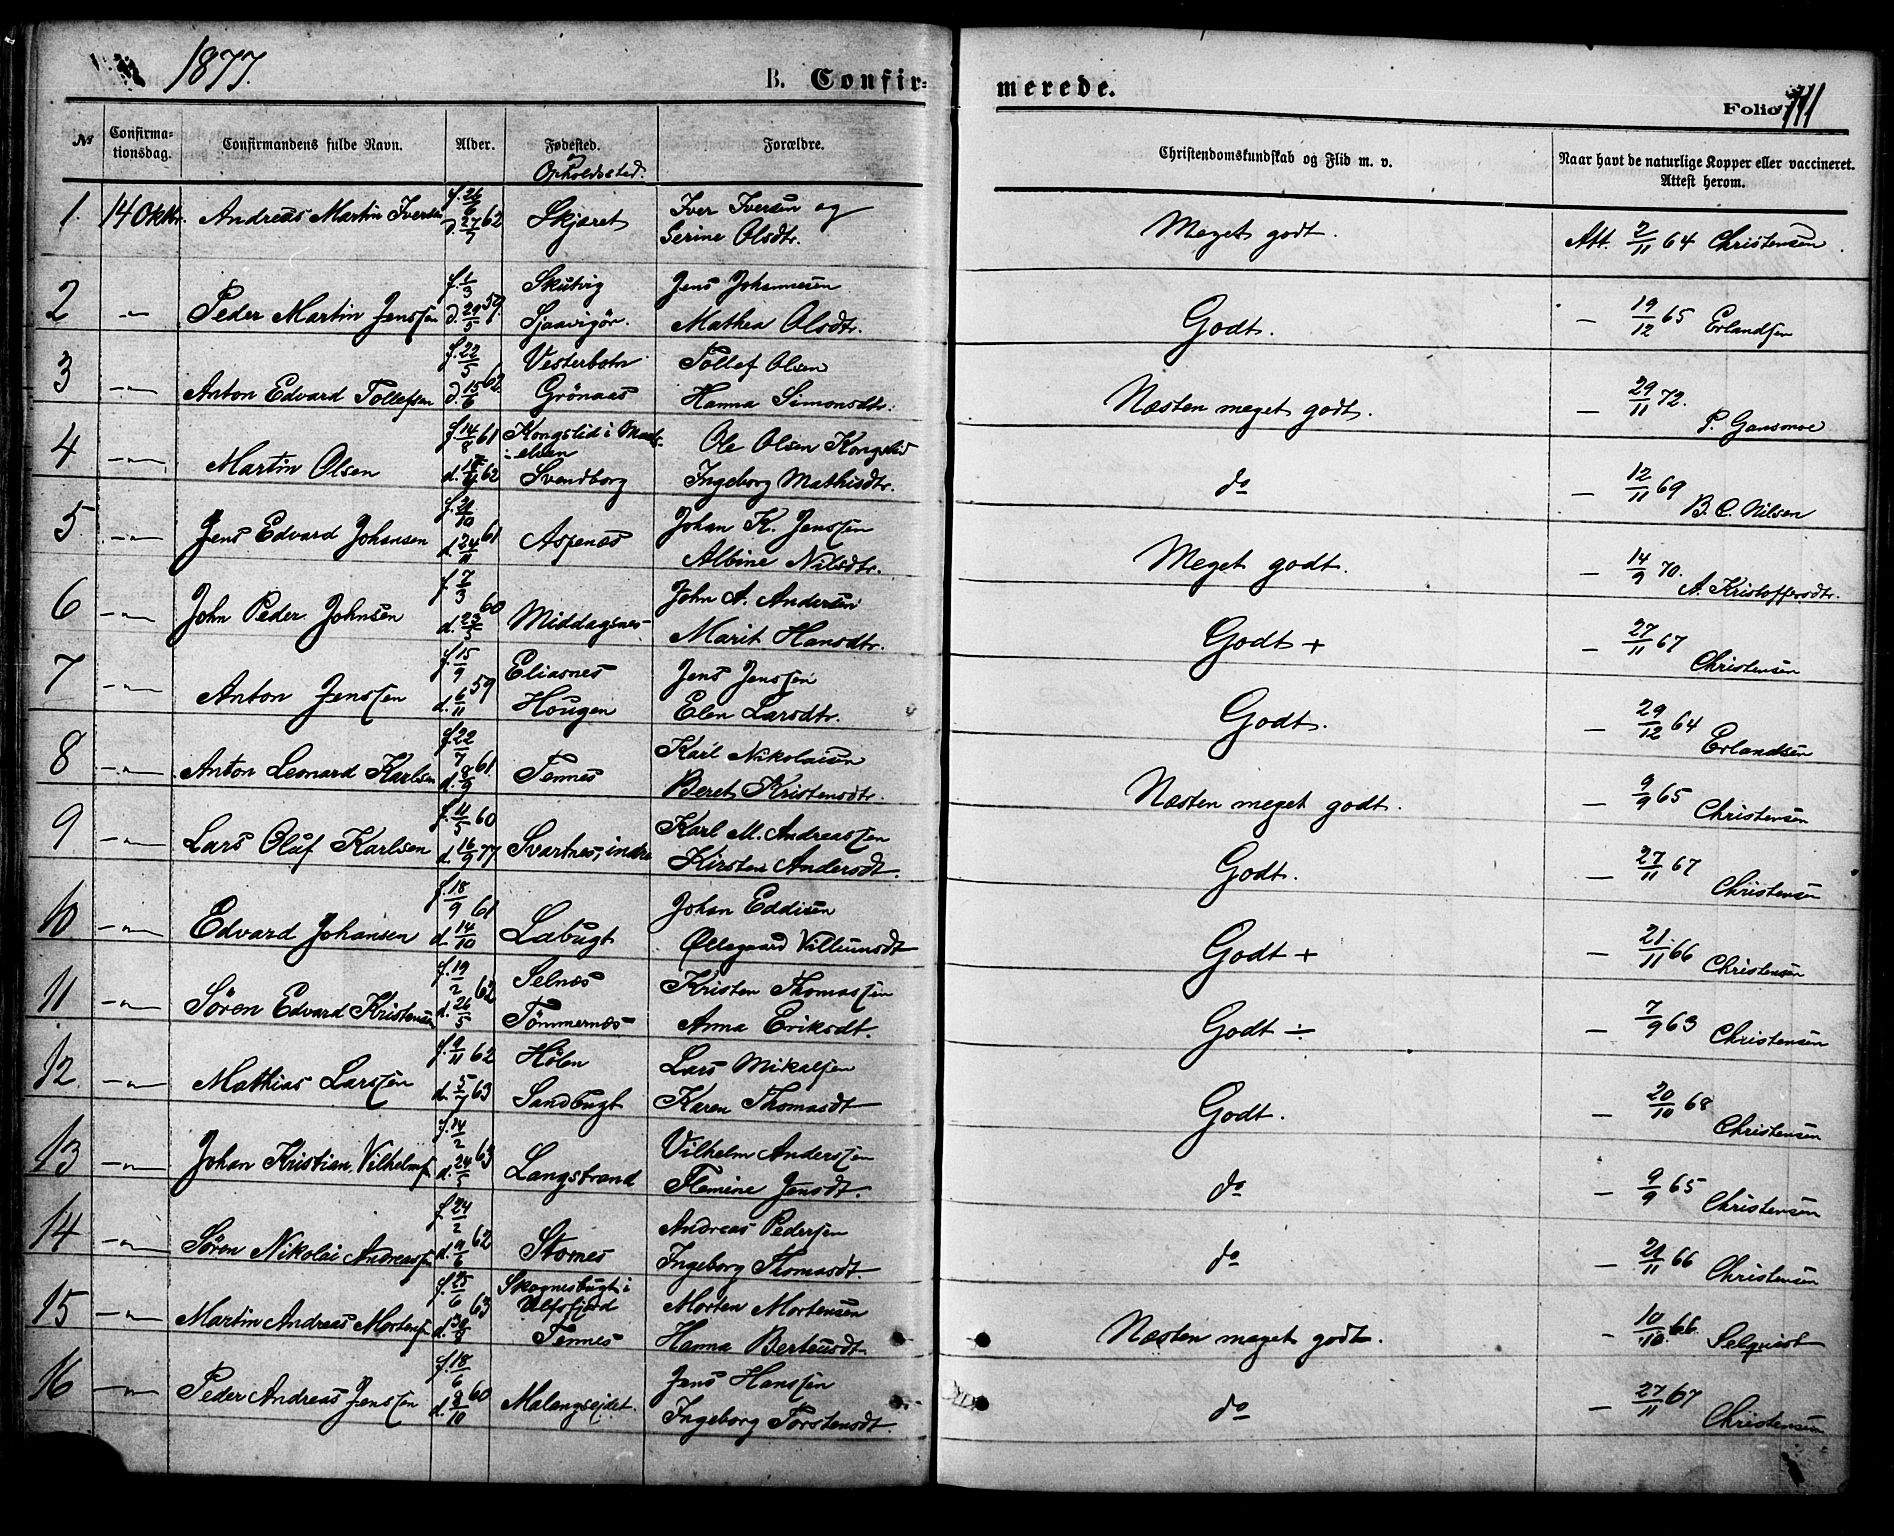 1877.
B. Confir-
merede.
Folio 111
№ Confirma-tionsdag. Confirmandens fulde Navn. Alder. Fødested. Forældre. Christendomskundskab og Flid m. v. Naar havt de naturlige Kopper eller vaccineret. Attest herom.
Opholdssted.
1. 14 Oktr. Andreas Martin Iversen f. 26/6 d. 27/7 62 Skjæret Iver Iversen og Serine Olsdtr. Meget godt. Att. 2/11 64 Christensen
2 -"- Peder Martin Jenssen f. 1/3 d. 29/5 59. Skutvig Sjaavigør. Jens Johannesen Mathea Olsdtr. Godt. - 19/12 65 Erlandsen
3 -"- Anton Edvard Tollefsen f. 22/3 d. 15/6 62 Vesterbotn Grönaas Tollef Olsen Hanna Simonsdtr. Næsten meget godt. - 29/11 72. P. Gansmoe
4 -"- Martin Olsen f. 14/8 61 d. 62 Kongslid i Maals-elven Svendborg Ole Olsen Kongslid Ingeborg Mathisdtr. do - 12/11 69 B. C. Nilsen
5 -"- Jens Edvard Johansen f. 21/10 d. 24/11 61 Aspenæs Johan K. Jenssen Albine Nilsdtr. Meget godt. - 14/9 70. A. Kristoffersdtr.
6 -"- John Peder Johnsen f. 7/3 d. 23/5 60 Middagsnes John A. Andersen Marit Hansdtr. Godt + - 27/11 67 Christensen
7 -"- Anton Jenssen f. 15/9 d. 6/11 59 Eliasnes Hougen Jens Jenssen Elen Larsdtr. Godt. - 29/12 64 Erlandsen
8 -"- Anton Leonard Karlsen f. 22/7 d. 8/9 61 Tennes Karl Nikolaisen Beret Kristensdtr. Næsten meget godt. - 9/9 65 Christensen
9 -"- Lars Oluf Karlsen f. 11/5 60 d. 16/9 77 Svartnes, indre Karl M. Andreassen Kirsten Andersdt. Godt. - 27/11 67 Christensen
10 -"- Edvard Johansen f. 18/9 d. 14/10 61 Labugt Johan Eddisen Øllegaard Villumsdt Godt + - 21/11 66 Christensen
11 -"- Sören Edvard Kristensen f. 19/2 d. 26/5 62 Selnæs Tömmernæs Kristen Thomassen Anna Eriksdt. Godt ÷ - 7/9 63 Christensen
12 -"- Mathias Larssen f. 9/11 62 d. 5/7 63 Hölen Sandbugt Lars Mikalsen Karen Thomasdt Godt. - 20/10 68 Christensen
13 -"- Johan Kristian Vilhelms. f. 14/2 d. 24/5 63 Langstrand Vilhelm Anderssen Flemine Jensdt. do - 9/9 65 Christensen
14 -"- Sören Nikolai Andreassen f. 24/2 d. 9/6 62 Stornes Andreas Pedersen Ingeborg Thomasdt. do - 21/11 66 Christensen
15 -"- Martin Andreas Mortensen f. 25/6 d. 30/8 63 Skognesbugt i Ulfsfjord Tennes Morten Mortensen Hanna Berteusdt. Næsten meget godt. - 10/10 66 Selquist
16 -"- Peder Andreas Jenssen f. 18/6 d. 8/10 60 Malangseidet. Jens Hanssen Ingeborg Torstensdt. do - 27/11 67 Christensen